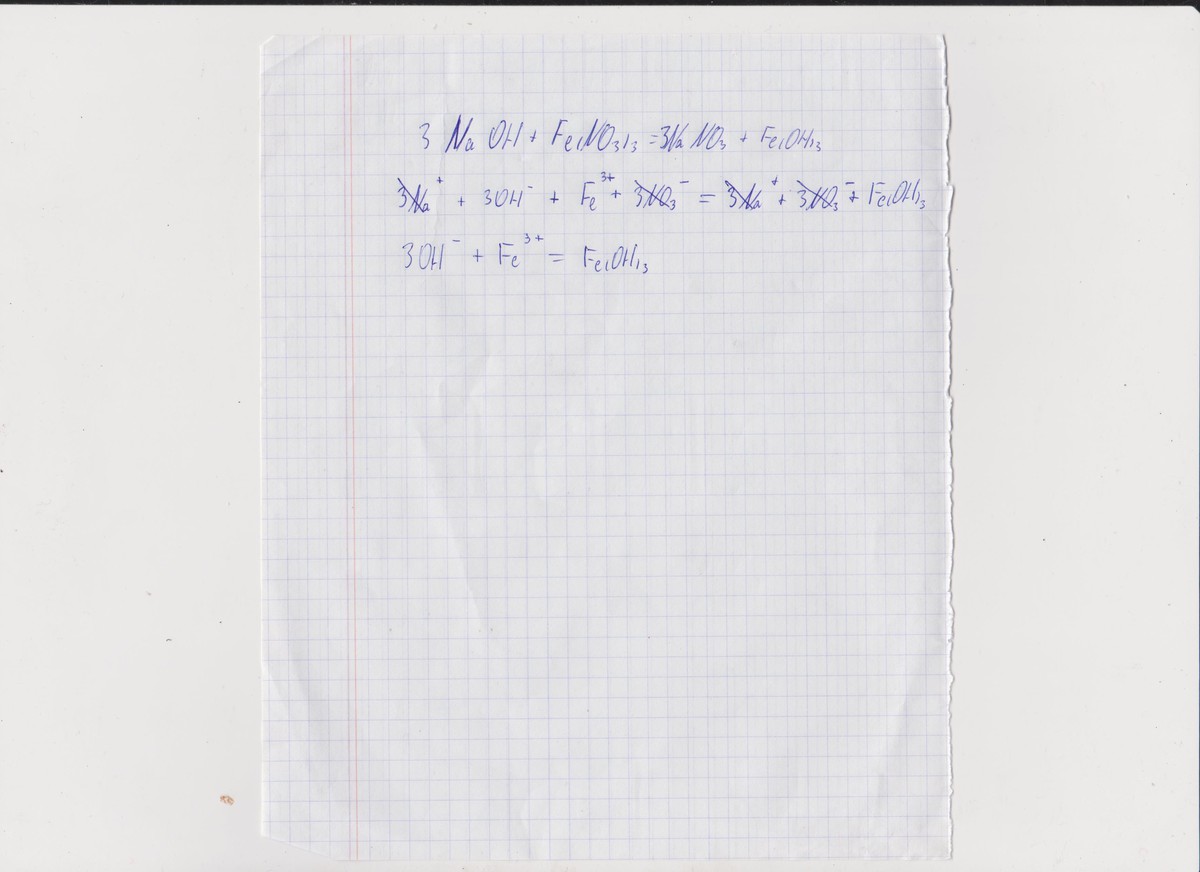 3 NaOH + Fe(NO3)3 = 3NaNO3 + Fe(OH)3
3Na+ + 3OH- + Fe3+ + 3NO3- = 3Na+ + 3NO3- + Fe(OH)3
3OH- + Fe3+ = Fe(OH)3